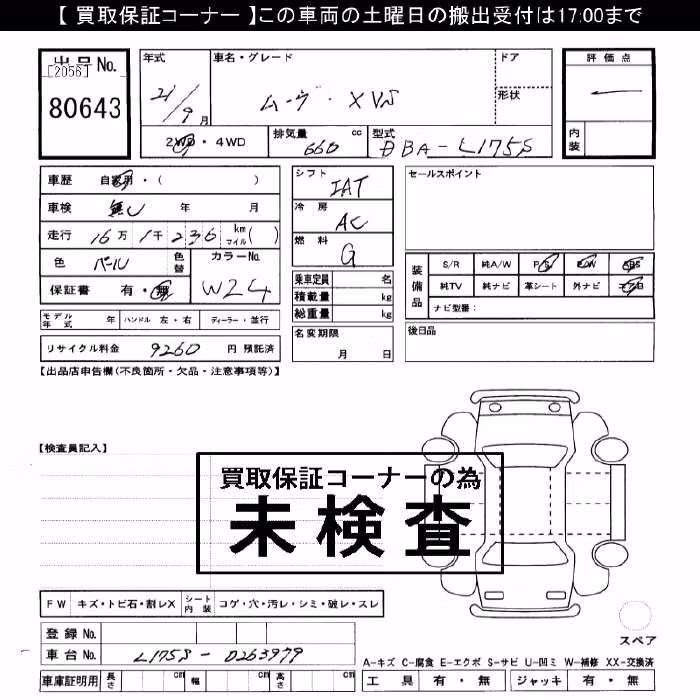 【 買取保証コーナー 】この車両の土曜日の搬出受付は17:00まで
出品No.
[2056]
80643
年式 21/9月
車名・グレード ムーヴ・XVS
ドア
形状
評価点
内装
2WD・4WD
排気量 660 cc
型式 DBA-L175S
車歴 自家用・( )
車検 無し 年 月
走行 16万 1千 236 km マイル( )
色 パール 色替
カラーNo. W24
保証書 有・無
シフト IAT
冷房 AC
燃料 G
乗車定員 名
積載量 kg
総重量 kg
セールスポイント
装備品 S/R 純A/W P/S P/W ABS
純TV 純ナビ 革シート 外ナビ
ナビ型番:
モデル年式 年 ハンドル 左・右 ディーラー・並行
名変期限 月 日
後日品
リサイクル料金 9260 円 預託済
【出品店申告欄(不良箇所・欠品・注意事項等)】
【検査員記入】
買取保証コーナーの為
未検査
FW キズ・トビ石・割レX シート内装 コゲ・穴・汚レ・シミ・破レ・スレ
登録No.
車台No. L175S-0263979
車庫証明用 長さ cm 幅 cm 高さ cm
スペア
A-キズ C-腐食 E-エクボ S-サビ U-凹ミ W-補修 XX-交換済
工具 有・無 ジャッキ 有・無